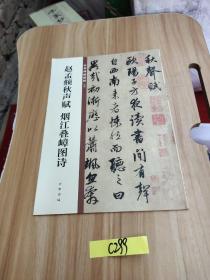 赵孟頫秋声赋 烟江叠嶂图诗
秋聲賦
歐陽子方夜讀書聞有聲
自西南來者悚然而聽之曰
異哉初淅瀝以蕭颯忽奔
C299